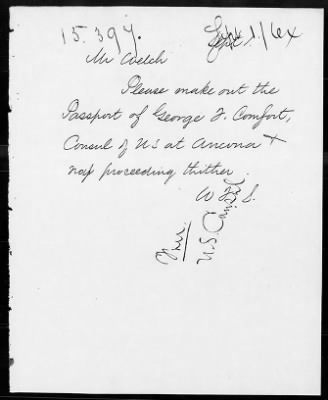 15.397.
Sept. 1/64
Mr Welch
Please make out the
Passport of George F. Comfort,
Consul of US at Ancona +
now proceeding thither
Free.
U.S. Consul